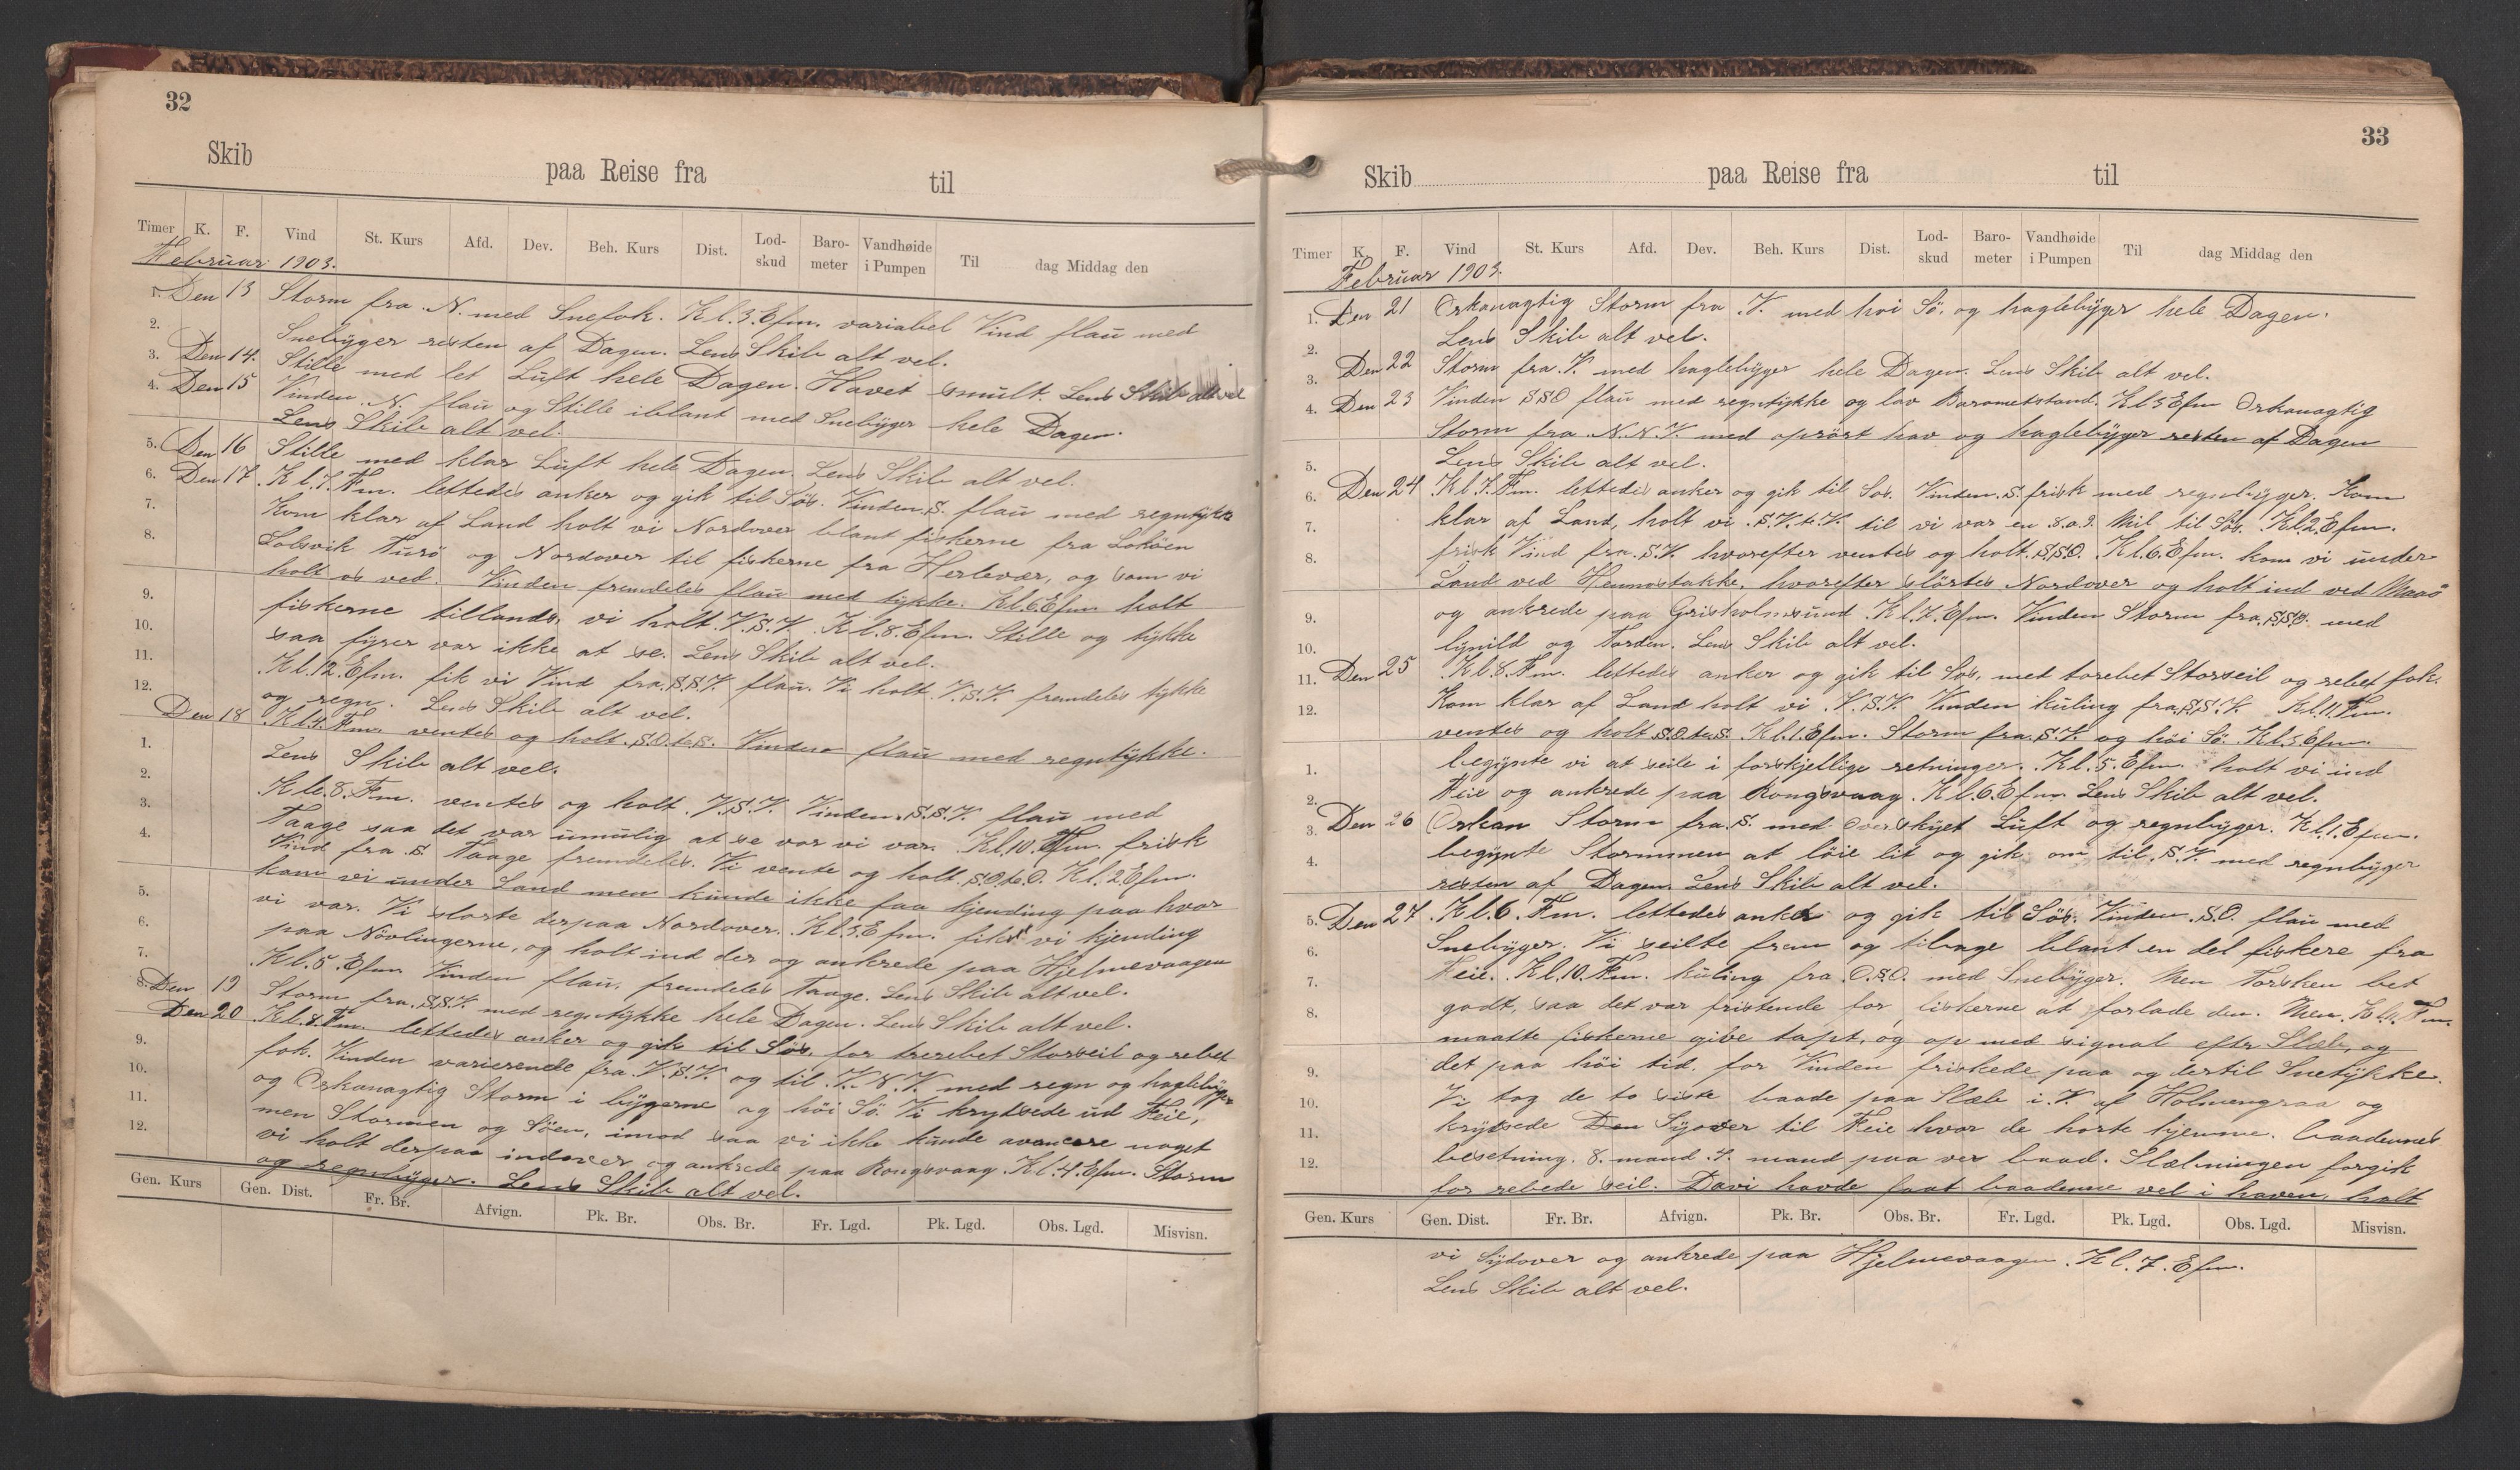 32
Skib paa Reise fra til
Timer K. F. Vind St. Kurs Afd. Dev. Beh. Kurs Dist. Lod-skud Baro-meter Vandhøide i Pumpen Til dag Middag den
Februar 1903.
1. Den 13 Storm fra N. med Snefok. Kl. 3. Efm. variabel Vind flaü med
2. Snebÿger resten af Dagen. Lens Skib alt vel.
3. Den 14. Stille med let Lüft hele Dagen. Havet smült. Lens Skib alt vel
4. Den 15 Vinden N. flaü og Stille iblant med Snebÿger hele Dagen.
Lens Skib alt vel.
5. Den 16 Stille med klar Lüft hele Dagen. Lens Skib alt vel.
6. Den 17. Kl. 7. Fm. lettedes anker og gik til Søs. Vinden S. flaü med regntÿkke
7. Kom klar af Land holt vi Nordover blant fiskerne fra Lokøen
8. Solsvik Türø og Nordover til fiskerne fra Herlevær, og som vi
holt os ved. Vinden fremdeles flaü med tÿkke. Kl. 6. Efm holt
9. fiskerne tillands, vi holt V.S.V. Kl. 8. Efm. Stille og tÿkke
10. saa fÿrer var ikke at se. Lens Skib alt vel.
11. Kl. 12. Efm. fik vi Vind fra S.S.V. flaü. Vi holt V.S.V. fremdeles tÿkke
12. og regn. Lens Skib alt vel.
Den 18 Kl. 4. Fm. ventes og holt S.O.t.S. Vinden flaü med regntÿkke.
1. Lens Skib alt vel.
2. Kl. 8. Fm. ventes og holt V.S.V. Vinden S.S.V. flaü med
3. Taage saa det var ümülig at se vor vi var. Kl. 10. Fm. frisk
4. Vind fra S. Taage fremdeles. Vi vente og holt S.O.t.O. Kl. 2. Efm.
kom vi ünder Land men künde ikke faa kjending paa hvor
5. vi var. Vi slørte derpaa Nordover. Kl. 3. Efm. fik vi kjending
6. paa Növlingerne, og holt ind der og ankrede paa Hjelmevaagen
7. Kl. 5. Efm. Vinden flaü, fremdeles Taage. Lens Skib alt vel.
8. Den 19 Storm fra S.S.V. med regntÿkke hele Dagen. Lens Skib alt vel.
Den 20 Kl. 8. Fm. lettedes anker og gik til Søs, for trerebet Storseil og rebet
9. fok. Vinden varierende fra V.S.V. og til V.N.V. med regn og haglebÿger
10. og Orkanagtig Storm i bÿgerne og höi Sö. Vi krydsede üd Feie,
11. men Stormen og Söen, imod saa vi ikke künde avancere noget
12. vi holt derpaa indover og ankrede paa Rongsvaag. Kl. 4. Efm. Storm
og regnbÿger. Lens Skib alt vel.
Gen. Kurs Gen. Dist. Fr. Br. Afvign. Pk. Br. Obs. Br. Fr. Lgd. Pk. Lgd. Obs. Lgd. Misvisn.
33
Skib paa Reise fra til
Timer K. F. Vind St. Kurs Afd. Dev. Beh. Kurs Dist. Lod-skud Baro-meter Vandhøide i Pumpen Til dag Middag den
Februar 1903.
1. Den 21 Orkanagtig Storm fra V. med höi Sö. og haglebÿger hele Dagen.
2. Lens Skib alt vel.
3. Den 22 Storm fra V. med haglebÿger hele Dagen. Lens Skib alt vel.
4. Den 23 Vinden SSO flaü med regntÿkke og lav Barometstand. Kl 3 Efm Orkanagtig
Storm fra N.N.V. med oprört hav og haglebÿger resten af Dagen
5. Lens Skib alt vel.
6. Den 24 Kl 7. Fm. lettedes anker og gik til Søs. Vinden S. frisk med regnbÿger. Kom
7. klar af Land, holt vi S.V.t.V. til vi var en 8. a 9. Mil til Søs. Kl. 2. Efm.
8. frisk Vind fra S.V. hvorefter ventes og holt S.S.O. Kl. 6. Efm. kom vi ünder
Land ved Hennøstakke, hvorefter slörtes Nordover og holt ind ved
9. og ankrede paa Grisholmsünd Kl. 7. Efm. Vinden Storm fra S.S.O. med
10. lynild og Torden. Lens Skib alt vel.
11. Den 25 Kl 8. Fm. lettedes anker og gik til Søs, med torebet Storseil og rebet fok.
12. Kom klar af Land holt vi V.S.V. Vinden küling fra S.S.V. Kl. 11. Fm.
ventes og holt S.O.t.S. Kl. 1. Efm. Storm fra S.V. og höi Sö. Kl. 3. Efm.
1. begÿnte vi at seile i forskjellige retninger. Kl. 5. Efm. holt vi ind
2. Feie og ankrede paa Rongsvaag. Kl. 6. Efm. Lens Skib alt vel.
3. Den 26 Orkan Storm fra S. med Overskÿet Lüft og regnbÿger. Kl. 1. Efm.
4. begÿnte Stormmen at löie lit og gik om til S.V. med regnbÿger
resten af Dagen. Lens Skib alt vel.
5. Den 27. Kl. 6. Fm. lettedes anker og gik til Søs. Vinden S.O. flaü med
6. Snebÿger. Vi seilte frem og tilbage blant en del fiskere fra
7. Feie. Kl. 10. Fm. küling fra O.S.O. med Snebÿger. Men Torsken bet
8. godt, saa det var fristende for fiskerne at forlade den. Men Kl. 11. Fm.
maatte fiskerne give tapt, og op med signal efter Slæb, og
9. det paa höi tid, for Vinden friskede paa og dertil Snetÿkke.
10. Vi tog de to siste baade paa Slæb i V. af Holmengraa og
11. krÿdsede Den Sÿover til Feie hvor de horte hjemme. baadennes
12. besetning. 8. mand. 4. mand paa ver baad. Slæbningen forgik
for rebede seil. Davi havde faat baadenne vel i haven, holt
Gen. Kurs Gen. Dist. Fr. Br. Afvign. Pk. Br. Obs. Br. Fr. Lgd. Pk. Lgd. Obs. Lgd. Misvisn.
vi Sÿdover og ankrede paa Hjelmevaagen. Kl. 7. Efm.
Lens Skib alt vel.